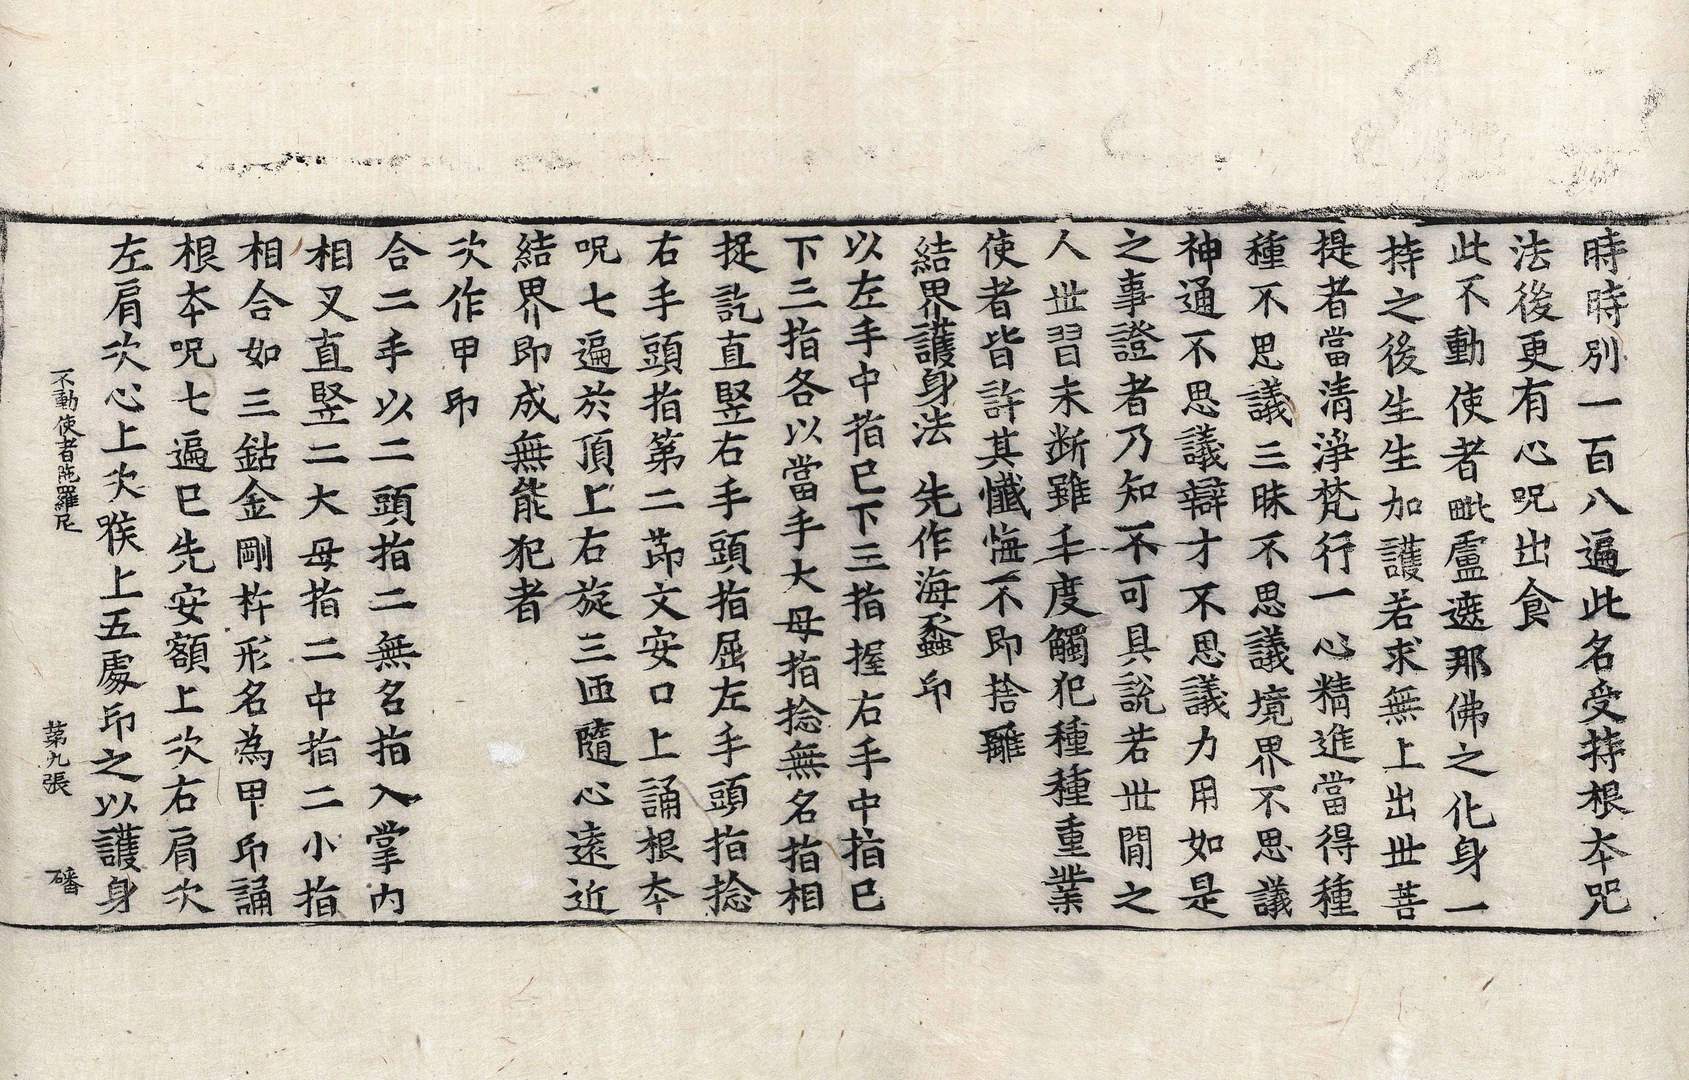 時時別一百八遍此名受持根本咒
法後更有心呪出食
此不動使者毗盧遮那佛之化身一
持之後生生加護若求無上出世菩
提者當清淨梵行一心精進當得種
種不思議三昧不思議境界不思議
神通不思議辯才不思議力用如是
之事證者乃知不可具說若世間之
人世習未斷雖年度觸犯種種重業
使者皆許其懺悔不即捨離
結界護身法 先作海螽印
以左手中指巳下三指握右手中指巳
下三指各以當手大母指捻無名指相
捉訖直竪右手頭指屈左手頭指捻
右手頭指第二節文安口上誦根本
呪七遍於頂上右旋三迊隨心遠近
結界即成無能犯者
次作甲印
合二手以二頭指二無名指入掌內
相叉直竪二大母指二中指二小指
相合如三鈷金剛杵形名為甲印誦
根本呪七遍巳先安額上次右肩次
左肩次心上次喉上五處印之以護身
不動使者陁羅尼 第九張 磻